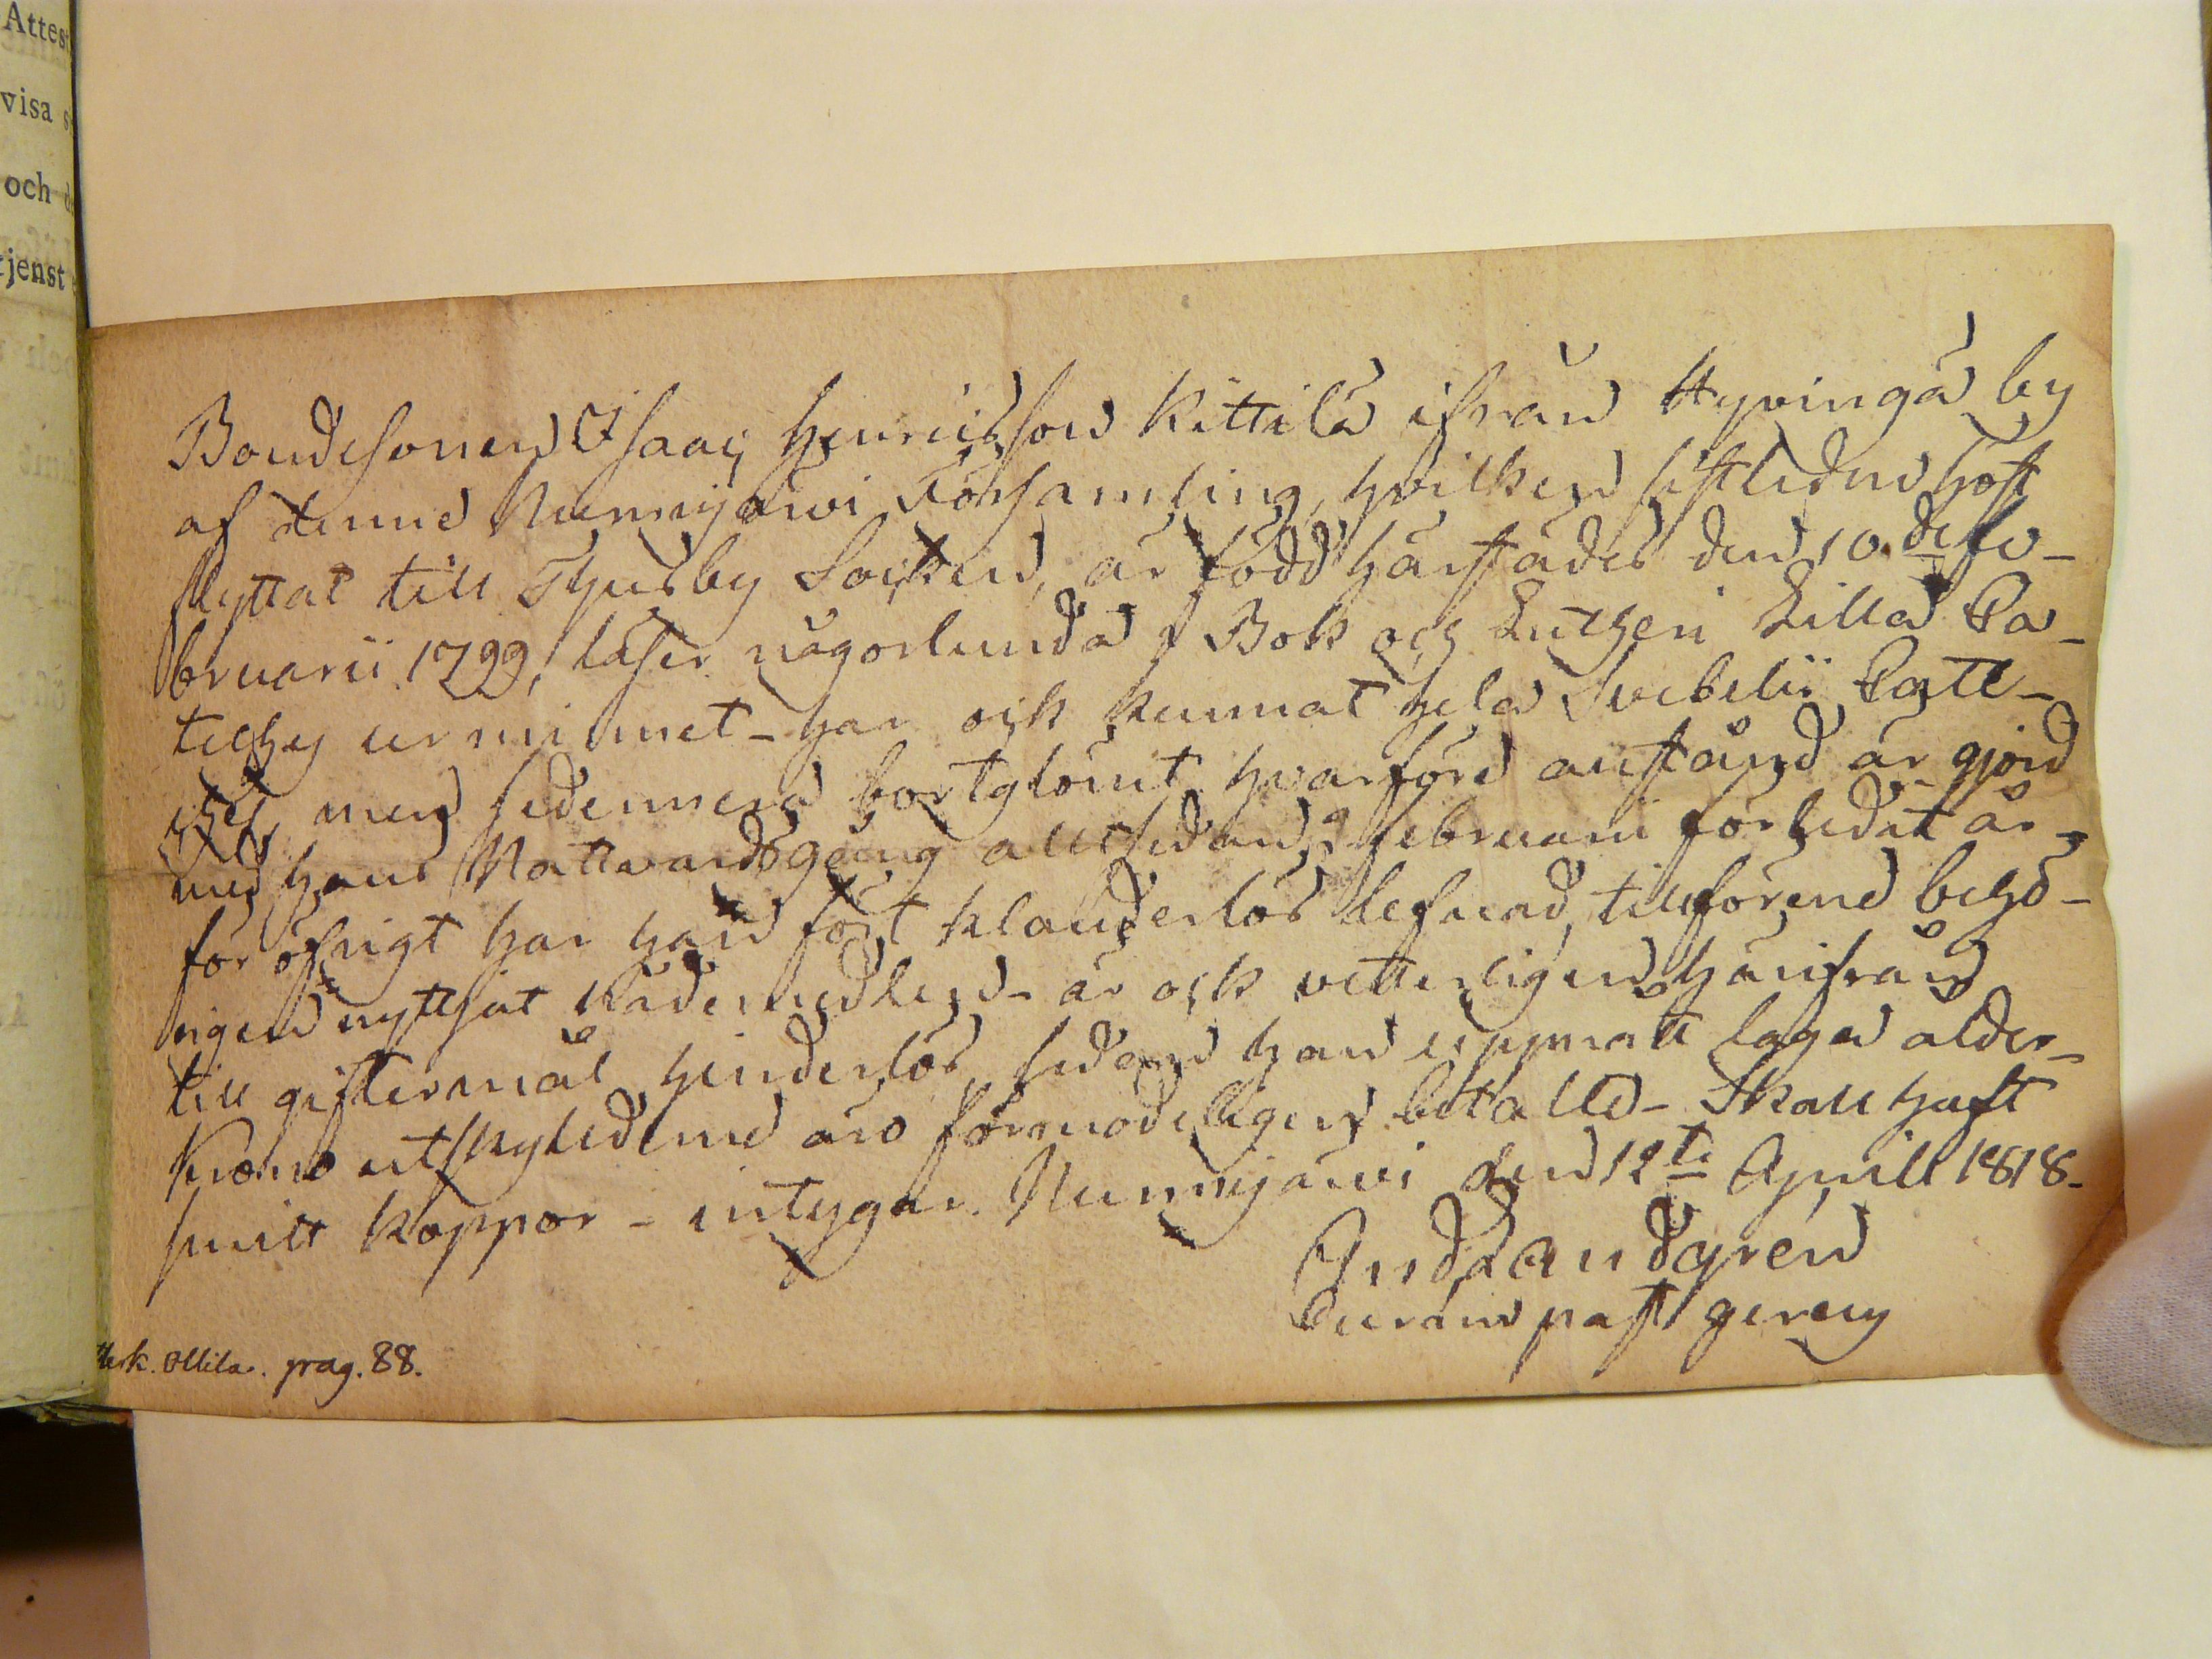 Attest
visa s
och d
tjenst
Bondesonen Isaac Henricsson Kittilä ifrån Hyvingä by
af denne Nurmijärvi Församling, hvilken sistleden höst
flyttat till Thusby Socken, är född härstädes den 10de Fe-
bruarii 1799, läser någorlunda i Bok och Lutheri Lilla Ca-
teches ur minnet - har ock kunnat hela Svebelii Cate-
ches, men sedermera bortglömt, hvarföre anstånd är gjord
med hans Nattvardsgång allt sedan 9 Februarii förledit år -
för öfrigt har han fört klanderlös lefnad, tillförene behö-
rigen nyttjat nådemedlen - är ock vetterligen härifrån
till giftermål hinderlös, sedan han uppnått laga ålder -
Krono utskylderne äro förmodeligen betallde - Skall haft
smitt koppor - intygar. Nurmijärvi den 12te Aprill 1818 -
And Landgren
Curam past gerens
Ollila. pag. 88.